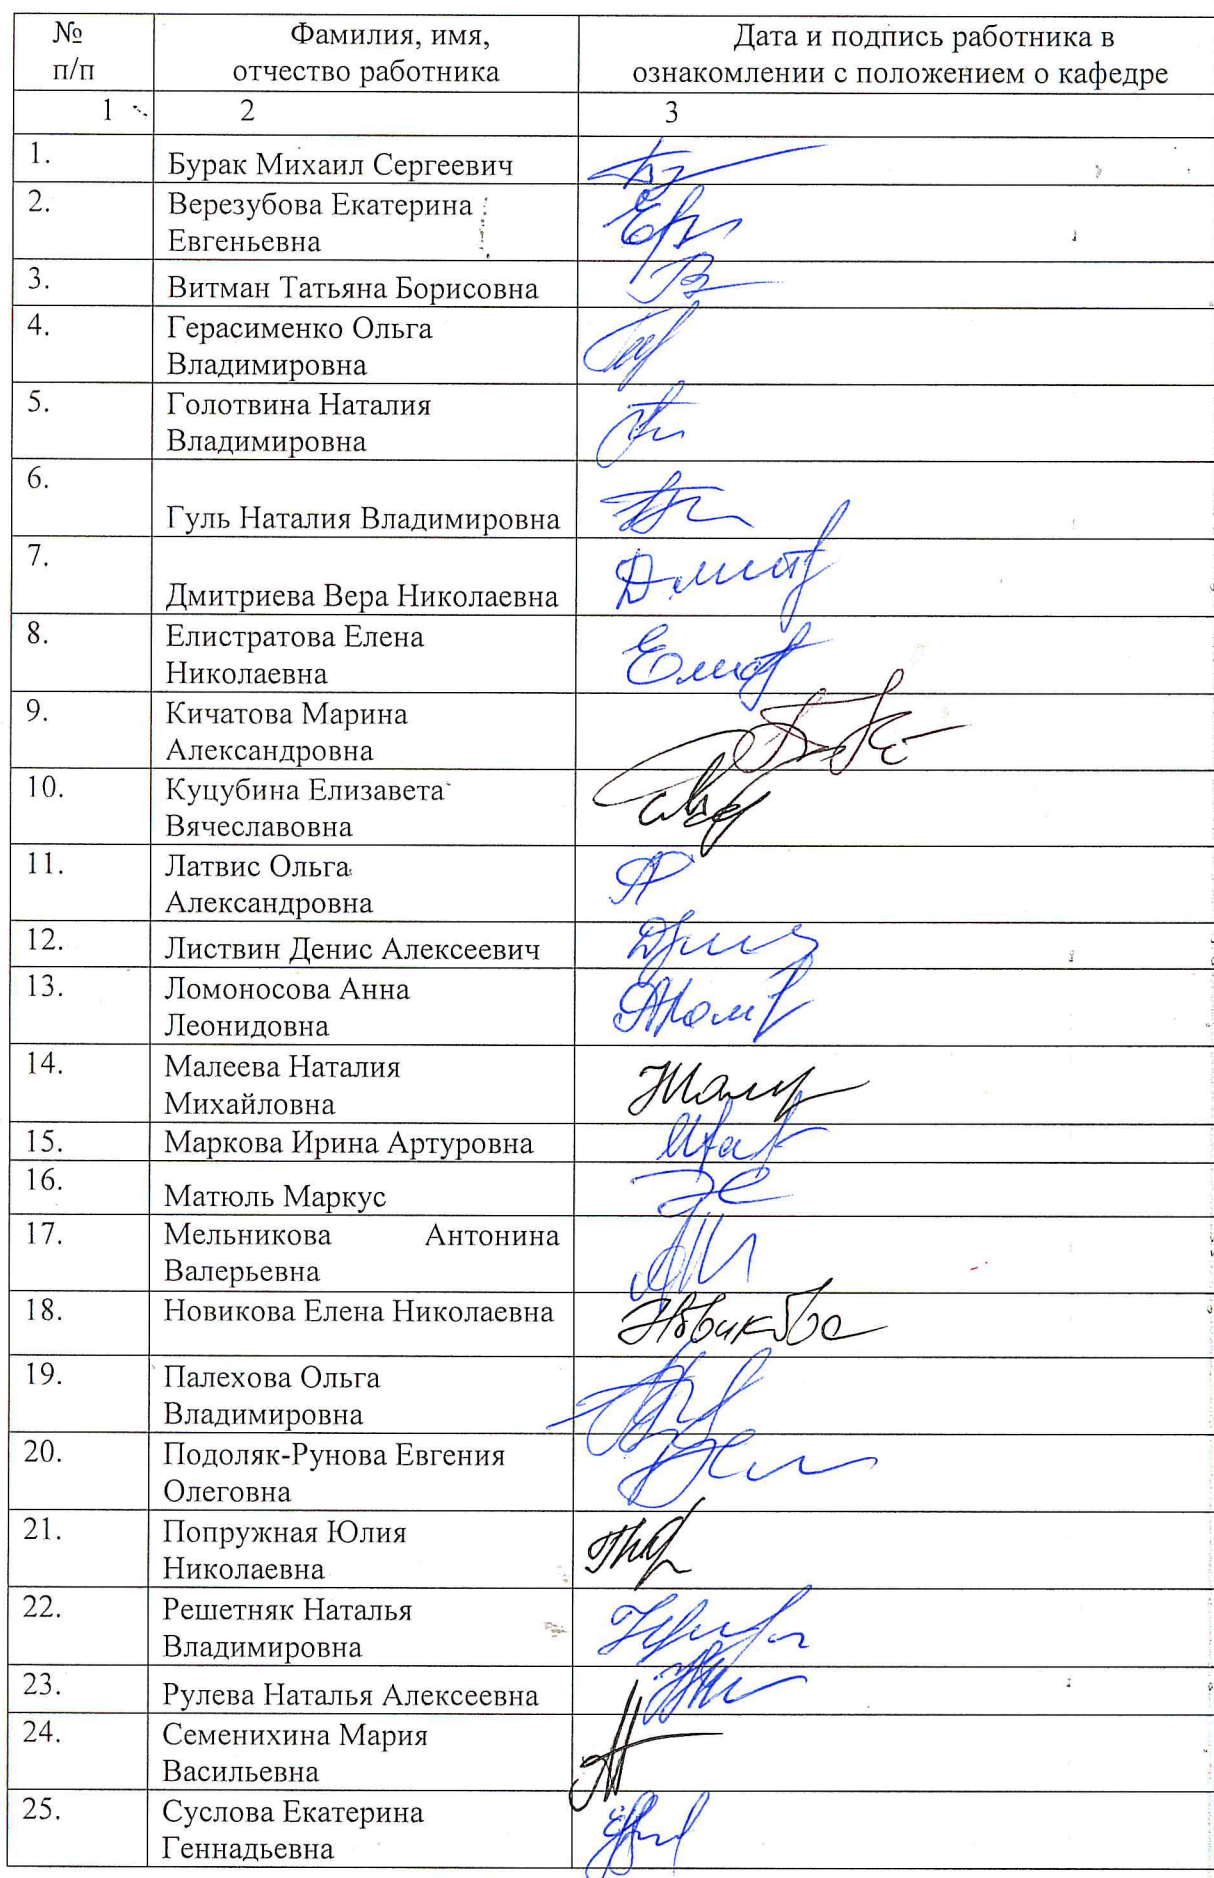 № Фамилия, имя, Дата и подпись работника в
п/п отчество работника ознакомлении с положением о кафедре
1 2 3
1. Бурак Михаил Сергеевич
2. Верезубова Екатерина
Евгеньевна
3. Витман Татьяна Борисовна
4. Герасименко Ольга
Владимировна
5. Голотвина Наталия
Владимировна
6.
Гуль Наталия Владимировна
7.
Дмитриева Вера Николаевна
8. Елистратова Елена
Николаевна
9. Кичатова Марина
Александровна
10. Куцубина Елизавета
Вячеславовна
11. Латвис Ольга
Александровна
12. Листвин Денис Алексеевич
13. Ломоносова Анна
Леонидовна
14. Малеева Наталия
Михайловна
15. Маркова Ирина Артуровна
16. Матюль Маркус
17. Мельникова Антонина
Валерьевна
18. Новикова Елена Николаевна Новикова
19. Палехова Ольга
Владимировна
20. Подоляк-Рунова Евгения
Олеговна
21. Попружная Юлия
Николаевна
22. Решетняк Наталья
Владимировна
23. Рулева Наталья Алексеевна
24. Семенихина Мария
Васильевна
25. Суслова Екатерина
Геннадьевна